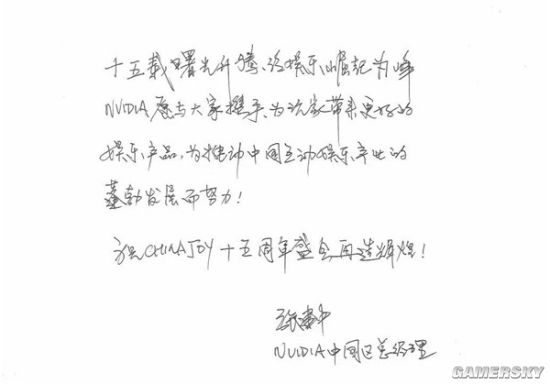 十五载曙光升腾、泛娱乐崛起为峰
NVIDIA愿与大家携手、为玩家带来更好的
娱乐产品,为推动中国互动娱乐产业的
蓬勃发展而努力!
祝CHINAJOY十五周年盛会再造辉煌!
张建中
NVIDIA中国区总经理
GAMERSKY